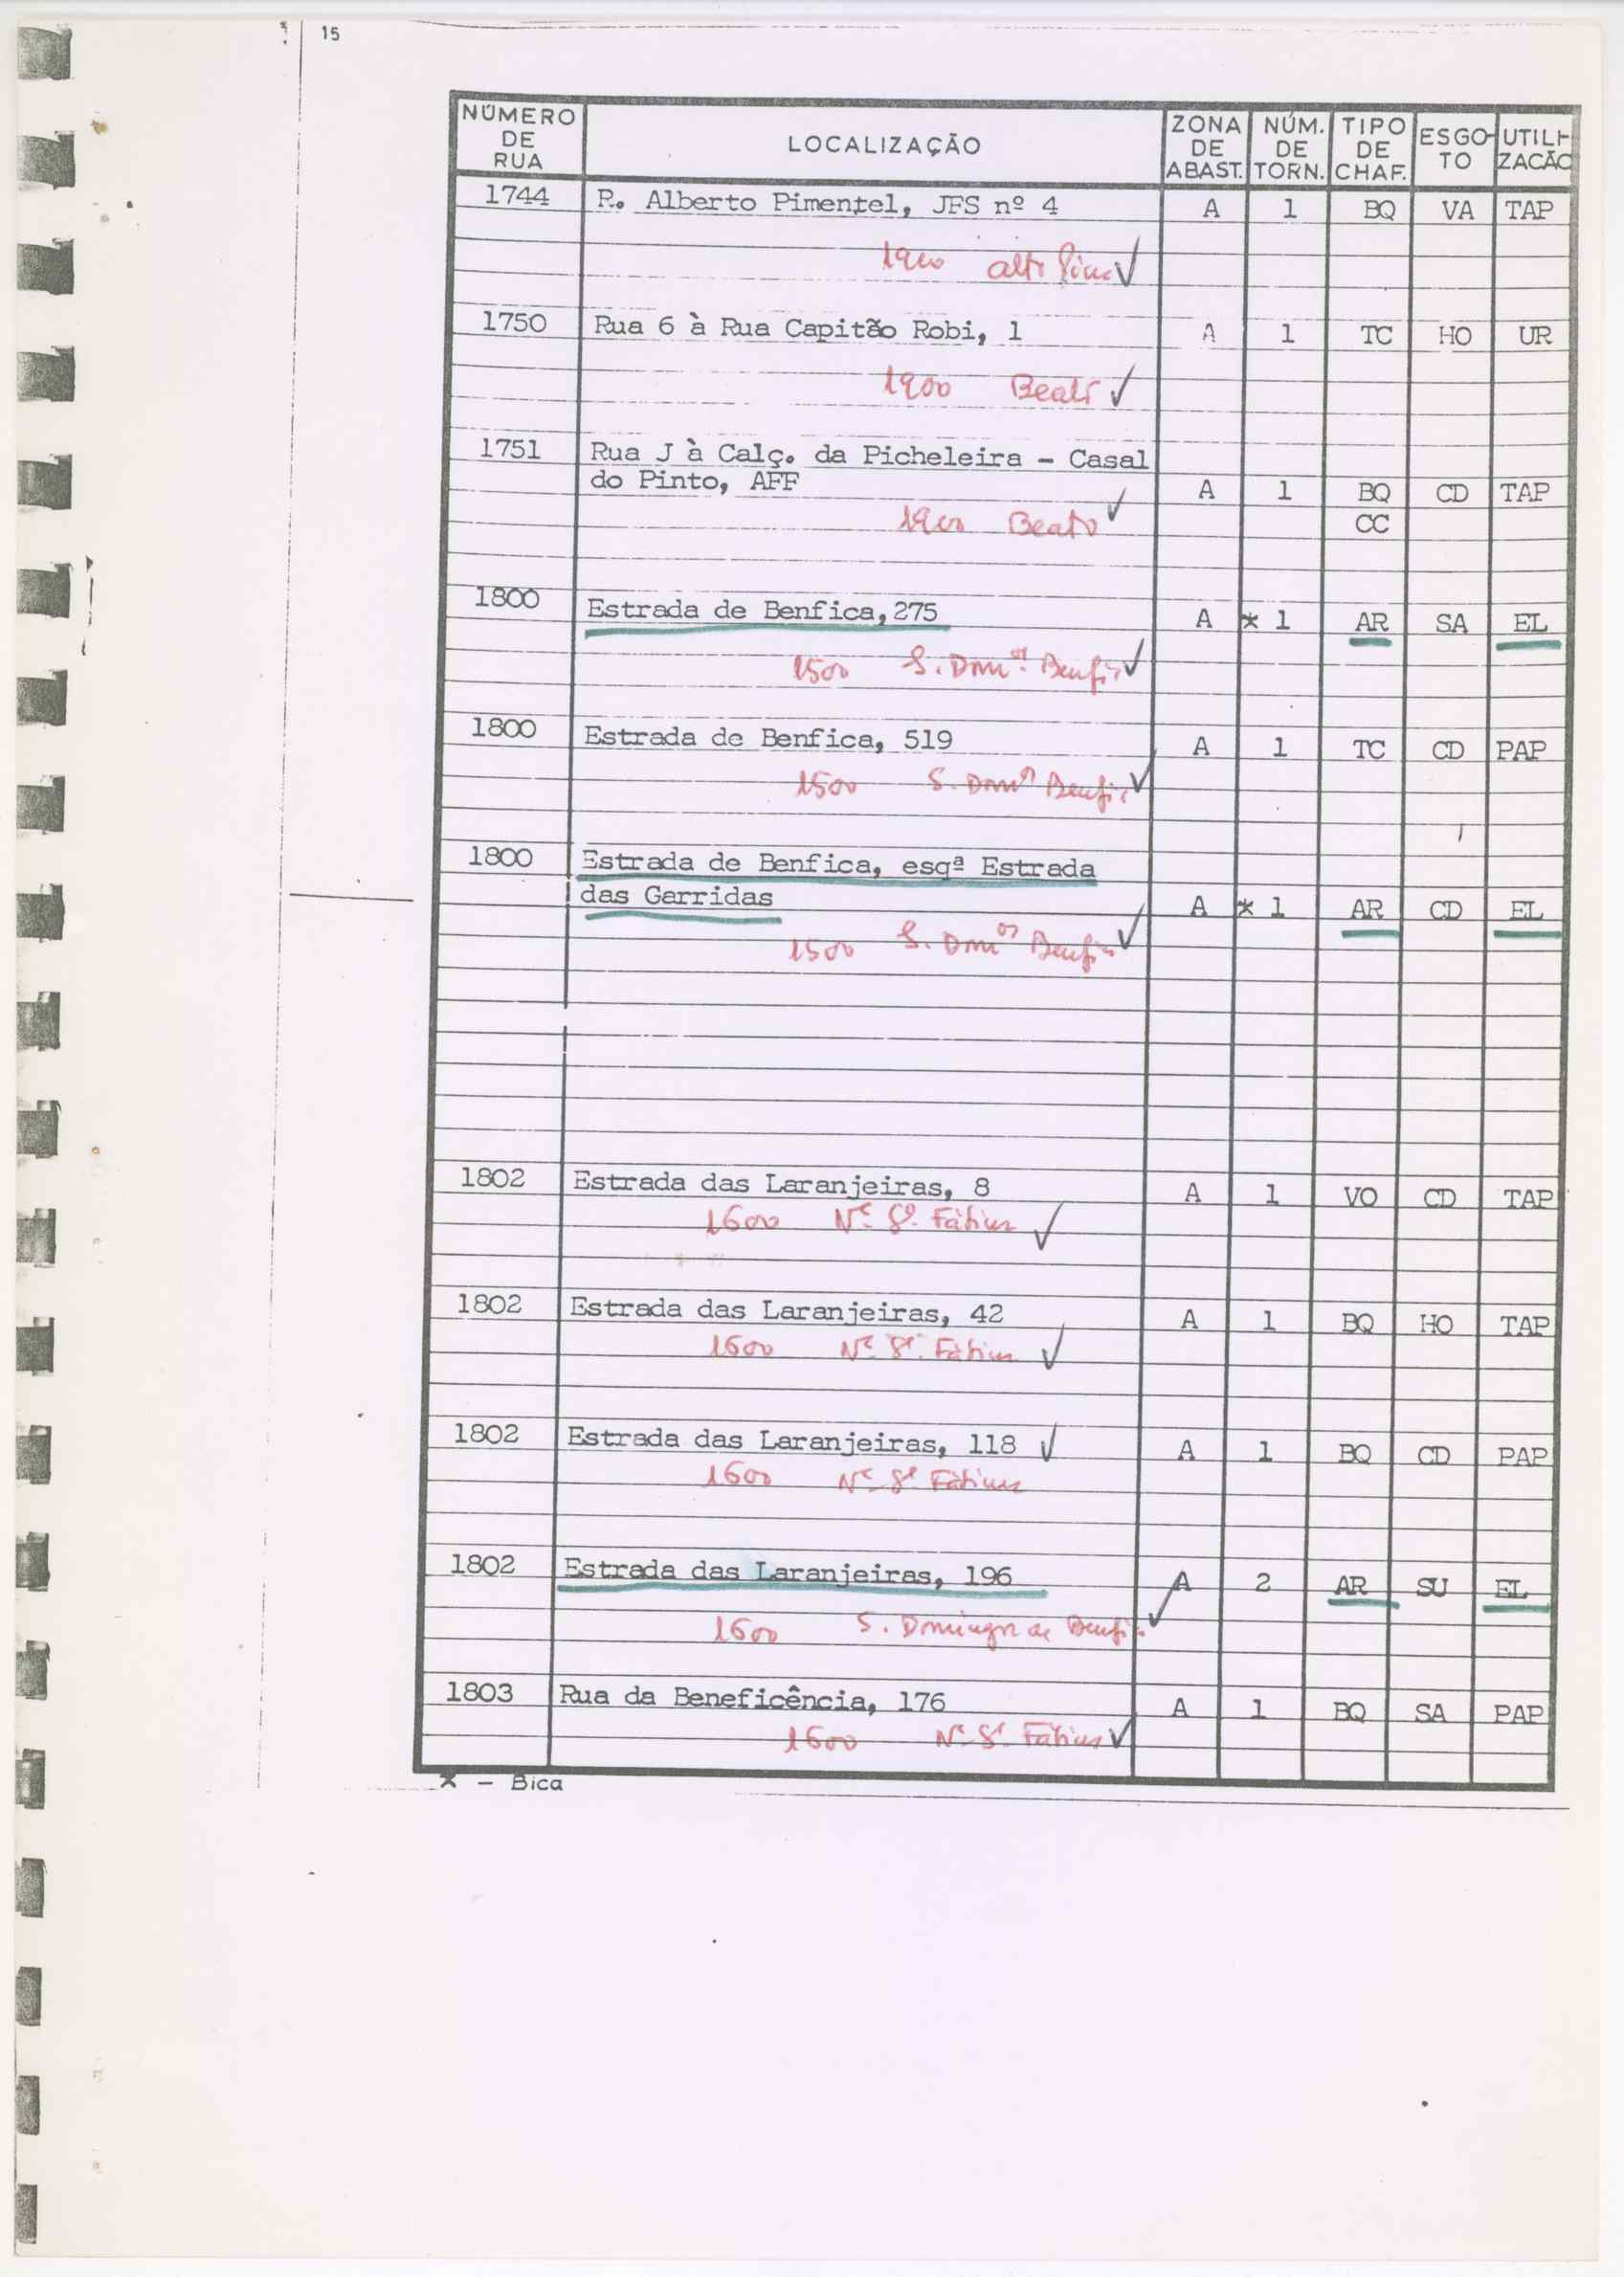 15
NÚMERO DE RUA LOCALIZAÇÃO ZONA DE ABAST. NÚM. DE TORN. TIPO DE CHAF. ESGOTO UTILIZACÃO
1744 R. Alberto Pimentel, JFS nº 4 A 1 BQ VA TAP
1900 alto
1750 Rua 6 à Rua Capitão Robi, 1 A 1 TC HO UR
1900 Beato
1751 Rua J à Calç. da Picheleira - Casal
do Pinto, AFF A 1 BQ CD TAP
1900 Beato CC
1800 Estrada de Benfica, 275 A * 1 AR SA EL
1500 S. Dom.os Benfica
1800 Estrada de Benfica, 519 A 1 TC CD PAP
1500 S. Dom.os Benfica
1800 Estrada de Benfica, esqª Estrada
das Garridas A * 1 AR CD EL
1500 S. Dom.os Benfica
1802 Estrada das Laranjeiras, 8 A 1 VO CD TAP
1600 Nª Sª Fátima
1802 Estrada das Laranjeiras, 42 A 1 BQ HO TAP
1600 Nª Sª Fátima
1802 Estrada das Laranjeiras, 118 A 1 BQ CD PAP
1600 Nª Sª Fátima
1802 Estrada das Laranjeiras, 196 A 2 AR SU EL
1600 S. Domingos de Benfica
1803 Rua da Beneficência, 176 A 1 BQ SA PAP
1600 Nª Sª Fátima
* - Bica